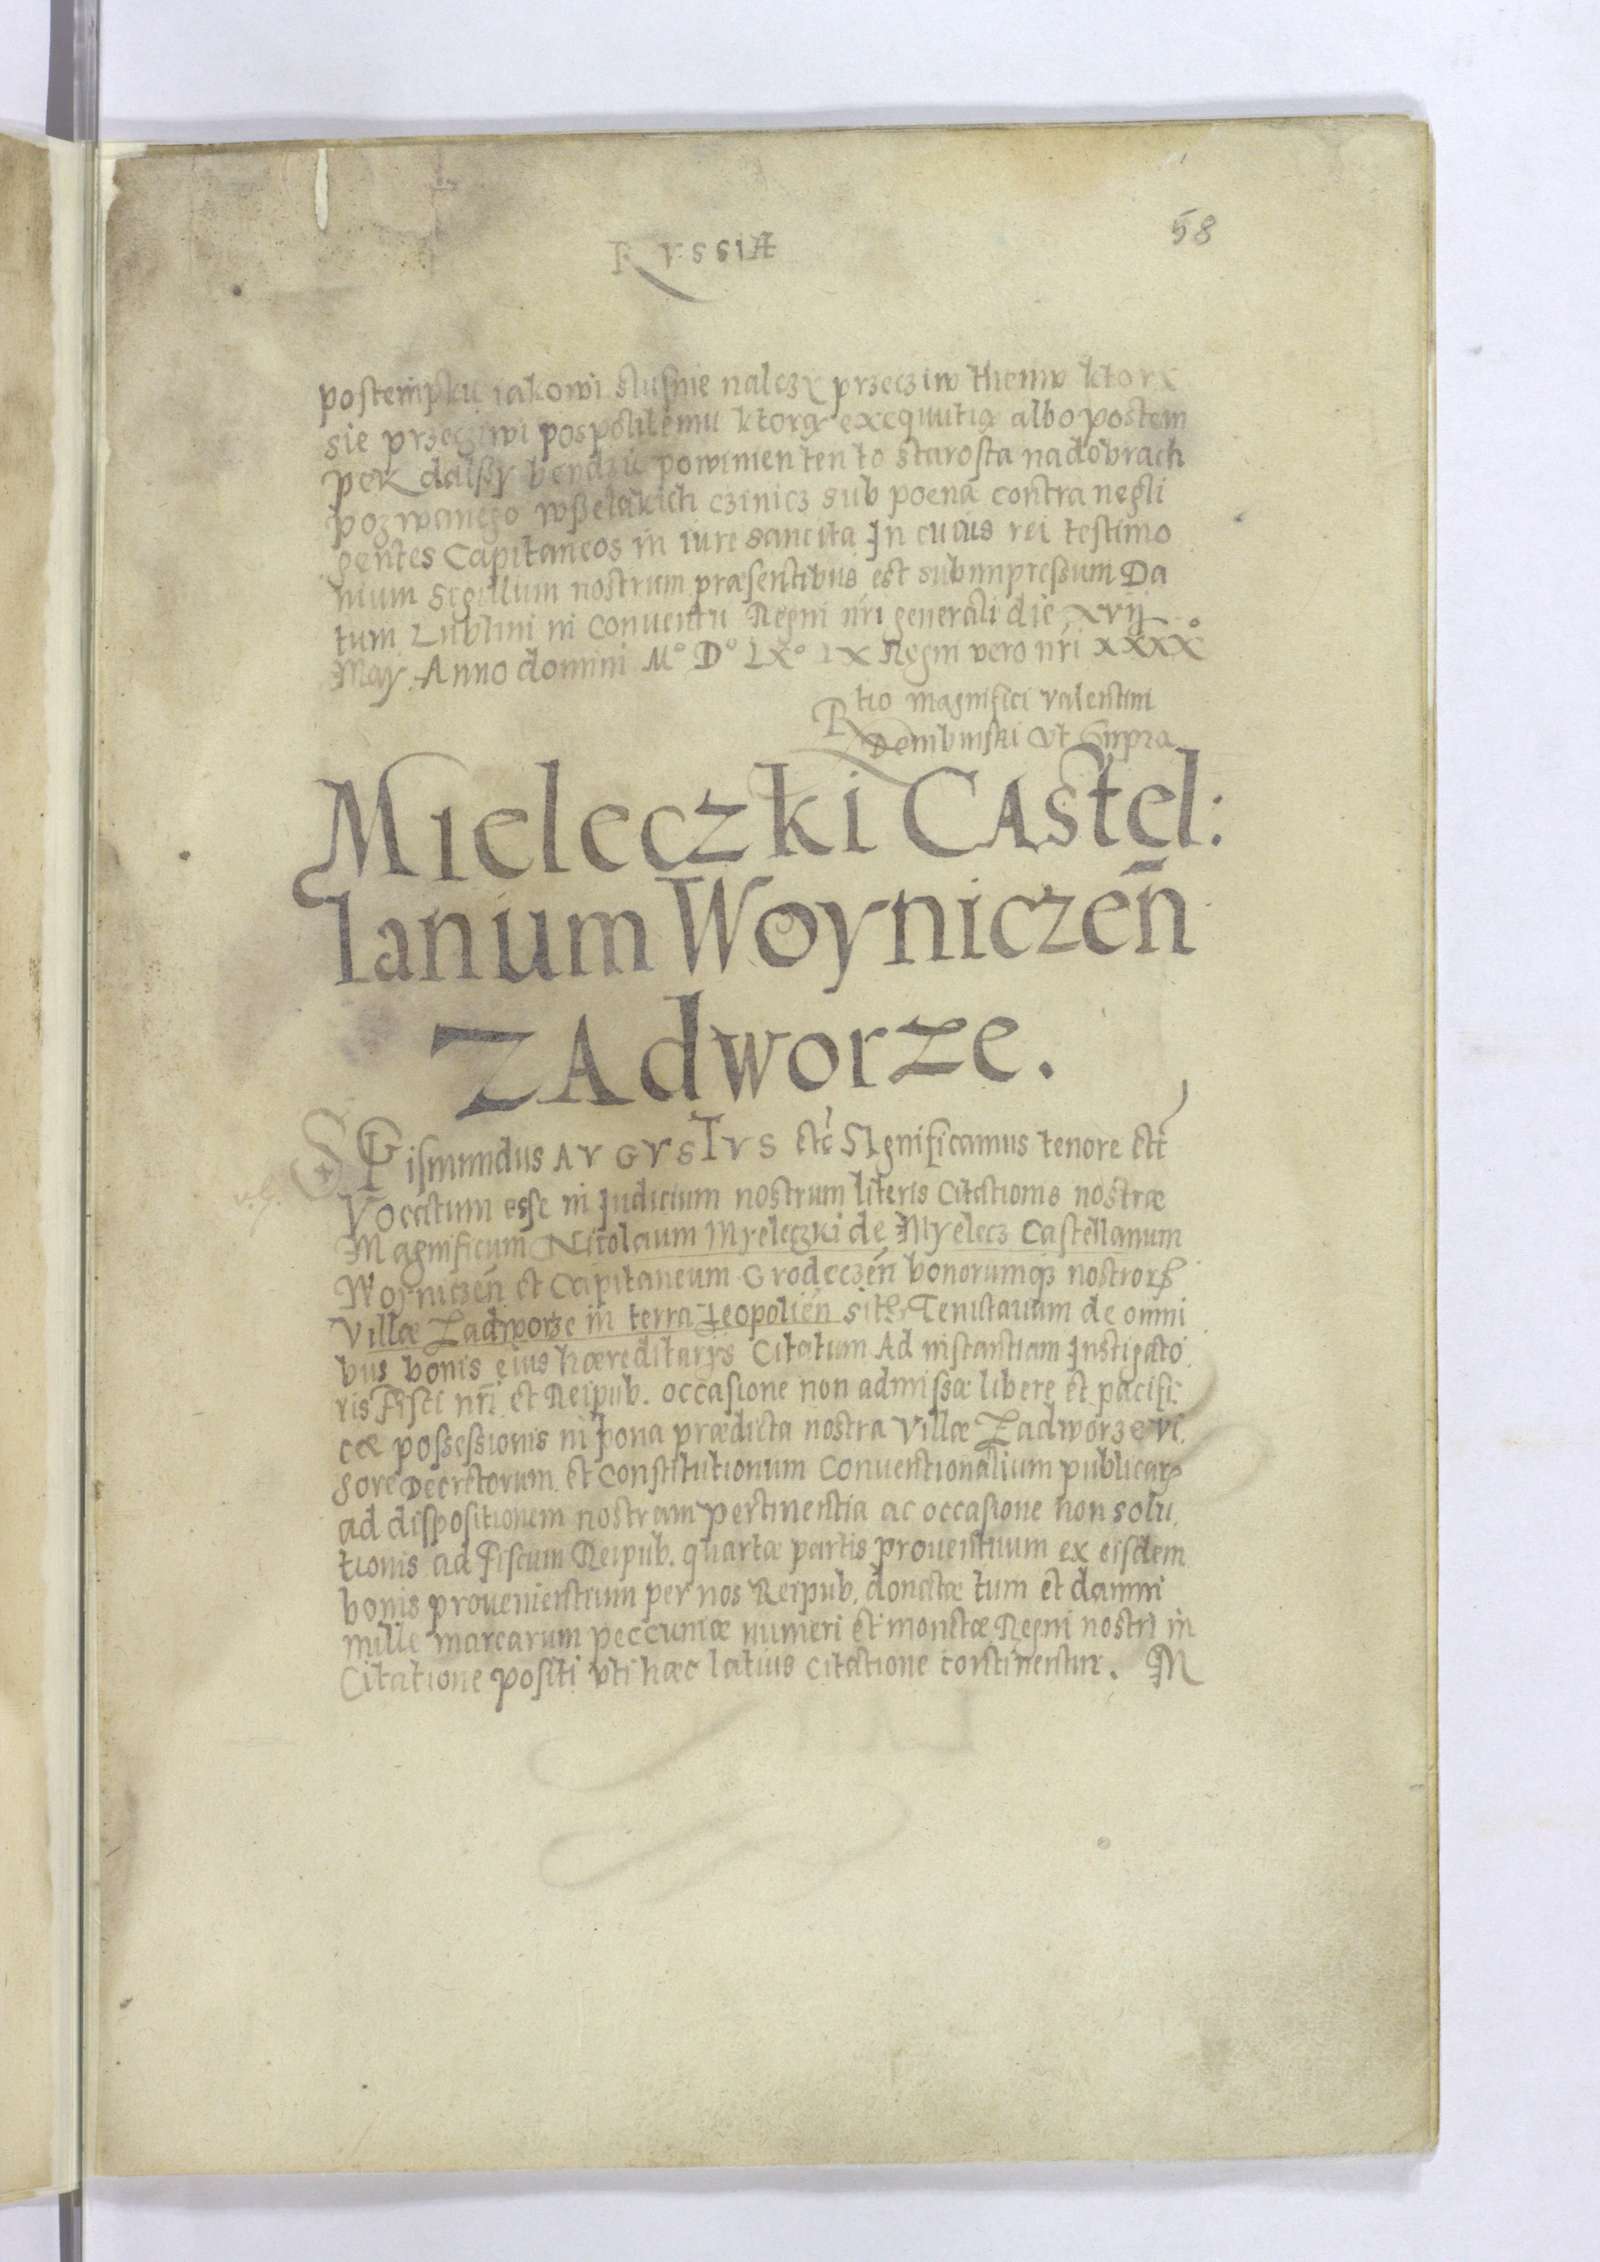 RVSSIA
58
postempku iakowi slusnie nalezÿ przecziw themv ktorÿ
sie przecziwi pospolitemu ktorą exequutią albo postem
pek dalszy bendzie powinien ten to starosta nadobrach
pozwanego wszelakich czinicz sub poena contra negli
gentes Capitaneos in iure sancita In cuius rei testimo
nium Sigillum nostrum præsentibus est subimpressum Da
tum Lublini in Conventu Regni nr̄i generali die xvij
Maÿ Anno domini M° D° LX° IX Regni vero nr̄i xxxx°
Rtio magnifici valentini
Dembinski Vt Supra
Mieleczki CAstel:
lanium Woyniczen̄
ZAdworze.
SIGismundus AVGVSTVS etc̄ SIgnificamus tenore ett̄
Vocatum esse in Iudicium nostrum literis Citationis nostræ
Magnificum Nicolaum Myeleczki de Myelecz Castellanum
Woyniczen̄ et Capitaneum Grodeczen̄ bonorumqz nostrorꝝ
Villæ Zadworze in terra Leopolien̄ Tenutarium de omni
bus bonis eius hæreditarÿs Citatum Ad instantiam Instigato
ris Fisci nr̄i et Reipub. occasione non admissæ libere et pacifi:
cæ possessionis in bona prædicta nostra Villæ Zadworze vi,
gore Decretorum et Constitutionum Conventionalium publicarꝝ
ad dispositionem nostram pertinentia ac occasione non solu,
tionis ad Fiscum Reipub. quartæ partis proventuum ex eisdem
bonis provenientium per nos Reipub. donatæ tum et damni
mille marcarum peccuniæ numeri et monetæ Regni nostri in
Citatione positi vti hæc latius Citatione continentur. M